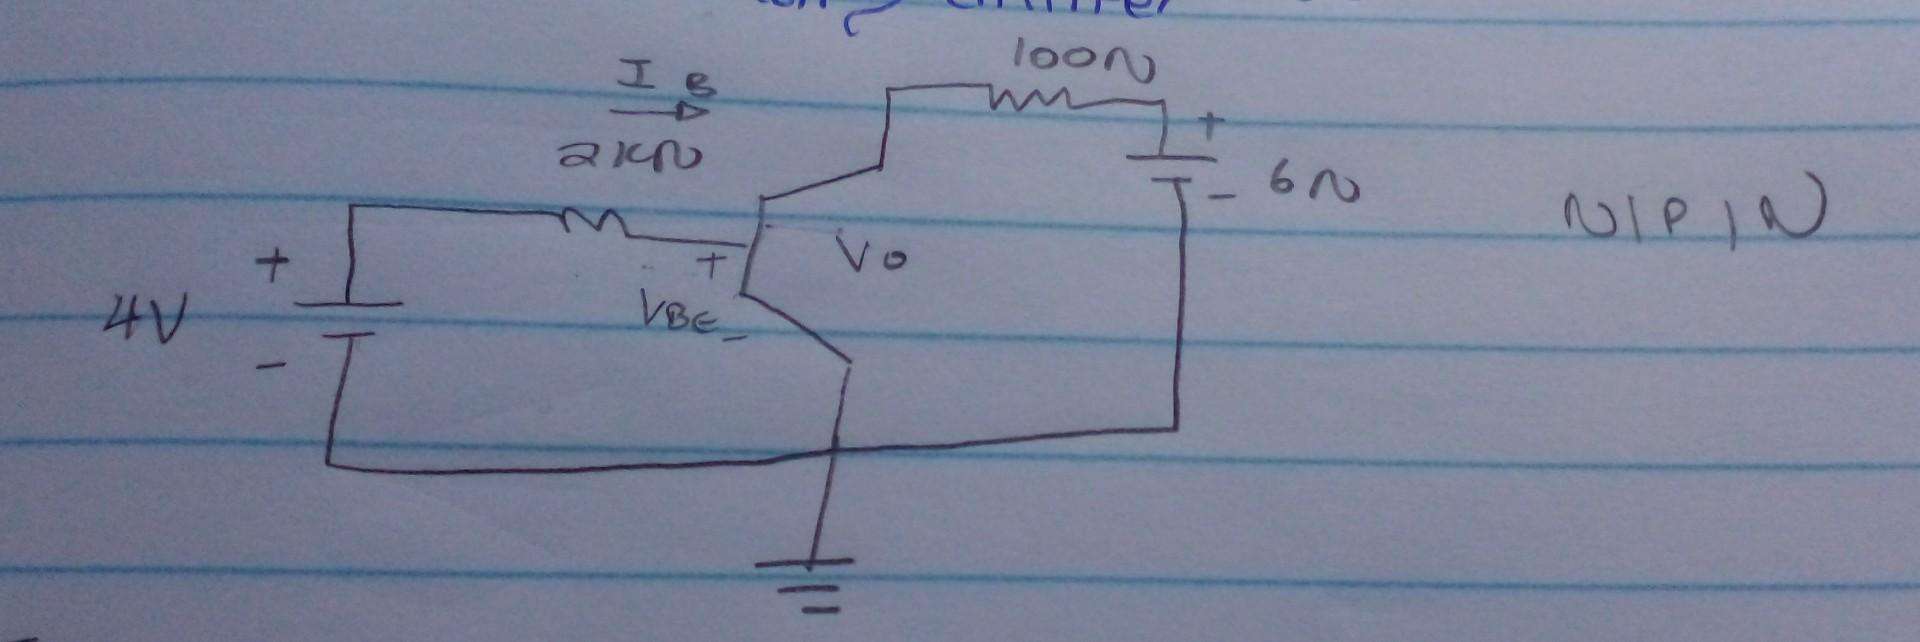 100Ω
I B
2KΩ
+
6Ω
-
N/P/N
+
4V
-
+
VBE
-
Vo